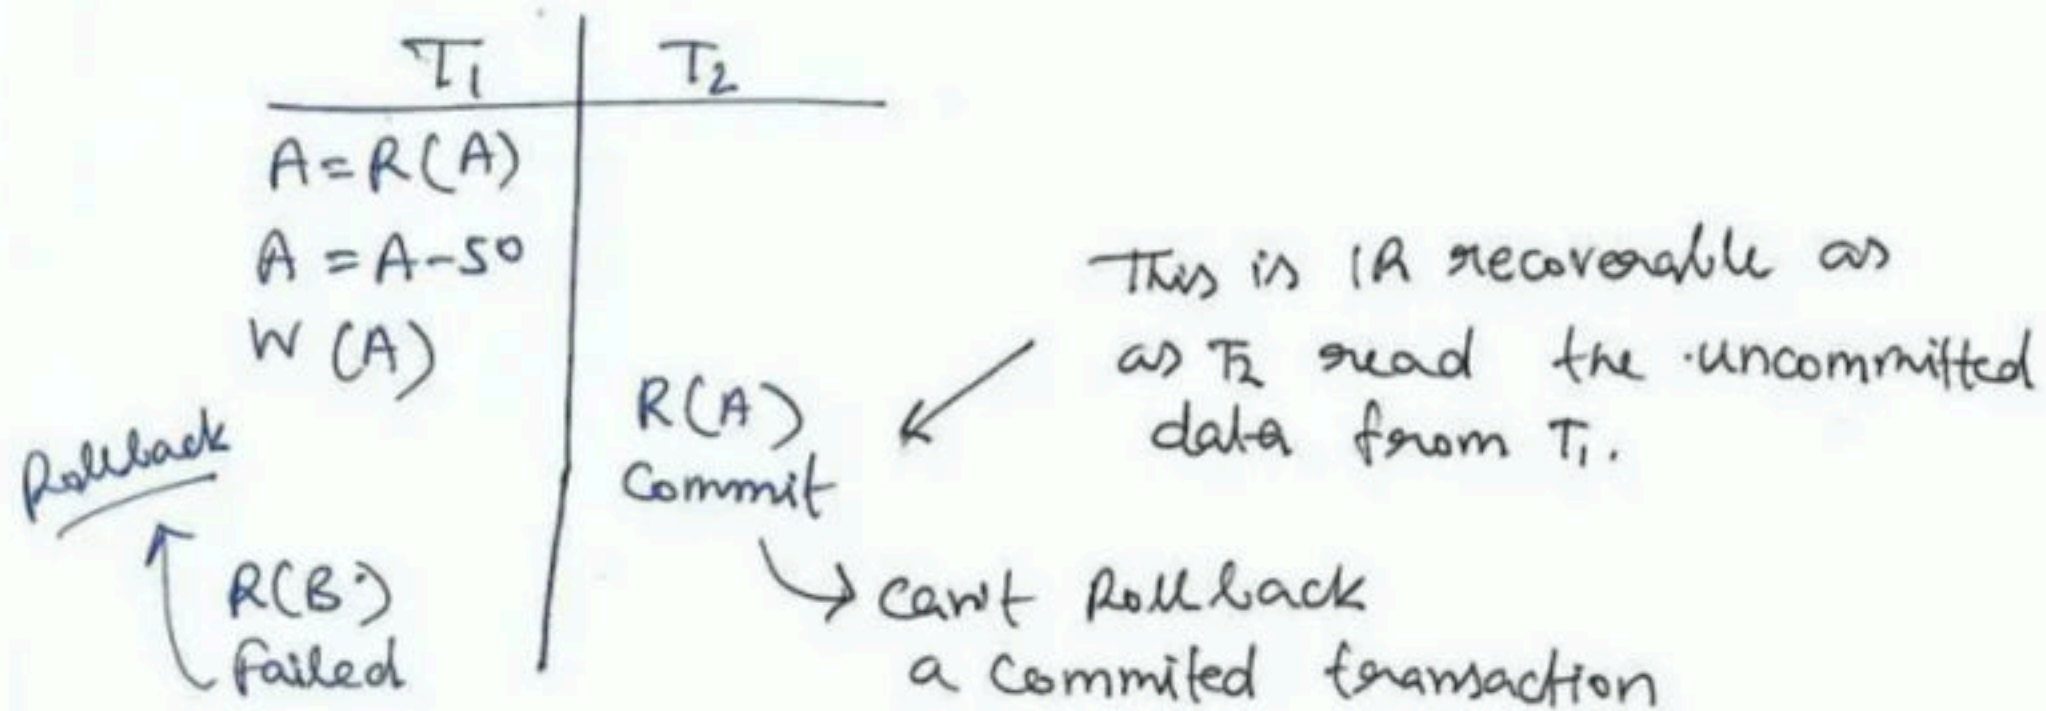 T1 T2
A=R(A)
A = A-50
W (A)
R(A)
Commit
Rollback
R(B)
failed
This is IR recoverable as
as T2 read the uncommitted
data from T1.
can't Rollback
a commited transaction